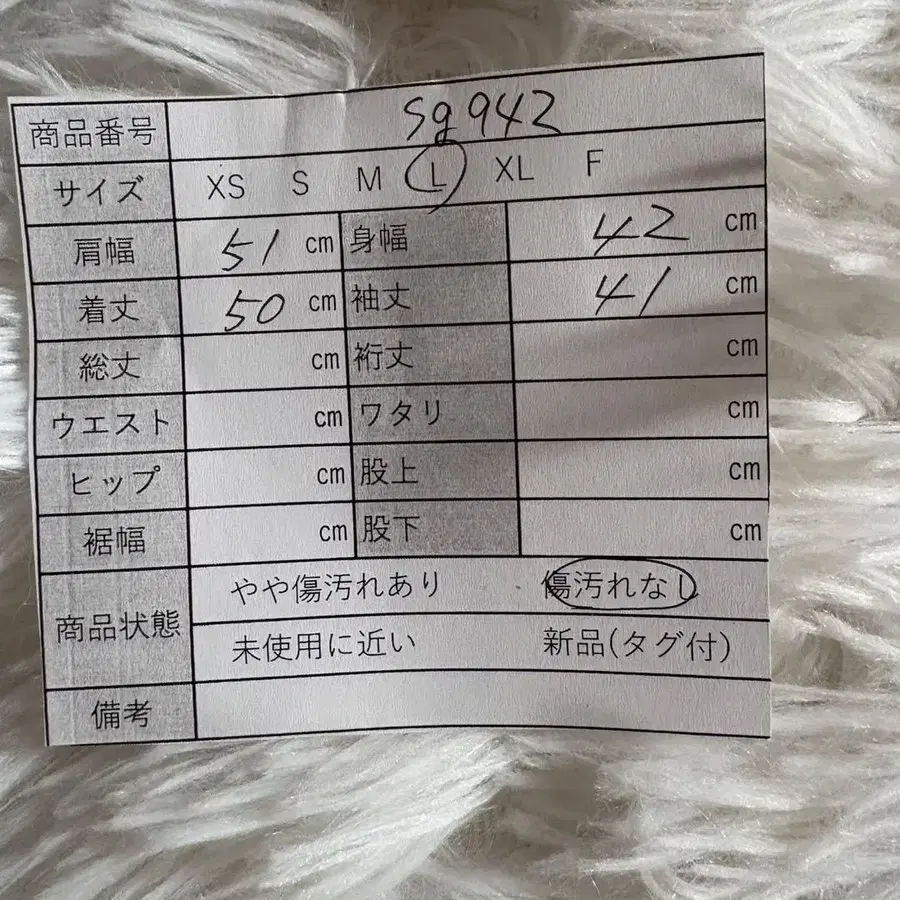 商品番号 sg942
サイズ XS S M L XL F
肩幅 51 cm 身幅 42 cm
着丈 50 cm 袖丈 41 cm
総丈 cm 裄丈 cm
ウエスト cm ワタリ cm
ヒップ cm 股上 cm
裾幅 cm 股下 cm
商品状態 やや傷汚れあり 傷汚れなし
未使用に近い 新品(タグ付)
備考